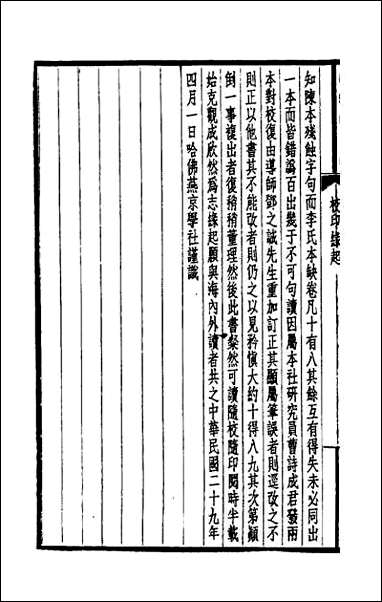 校印緣起
知陳本殘蝕字句而李氏本缺卷凡十有八其餘互有得失未必同出
一本而皆錯譌百出幾于不可句讀因屬本社研究員曹詩成君發兩
本對校復由導師鄧之誠先生重加訂正其顯屬筆誤者則逕改之不
則正以他書其不能改者則仍之以見矜愼大約十得八九其次第顚
倒一事複出者復稍稍董理然後此書粲然可讀隨校隨印閱時半載
始克觀成欣然爲志緣起願與海內外讀者共之中華民國二十九年
四月一日哈佛燕京學社謹識